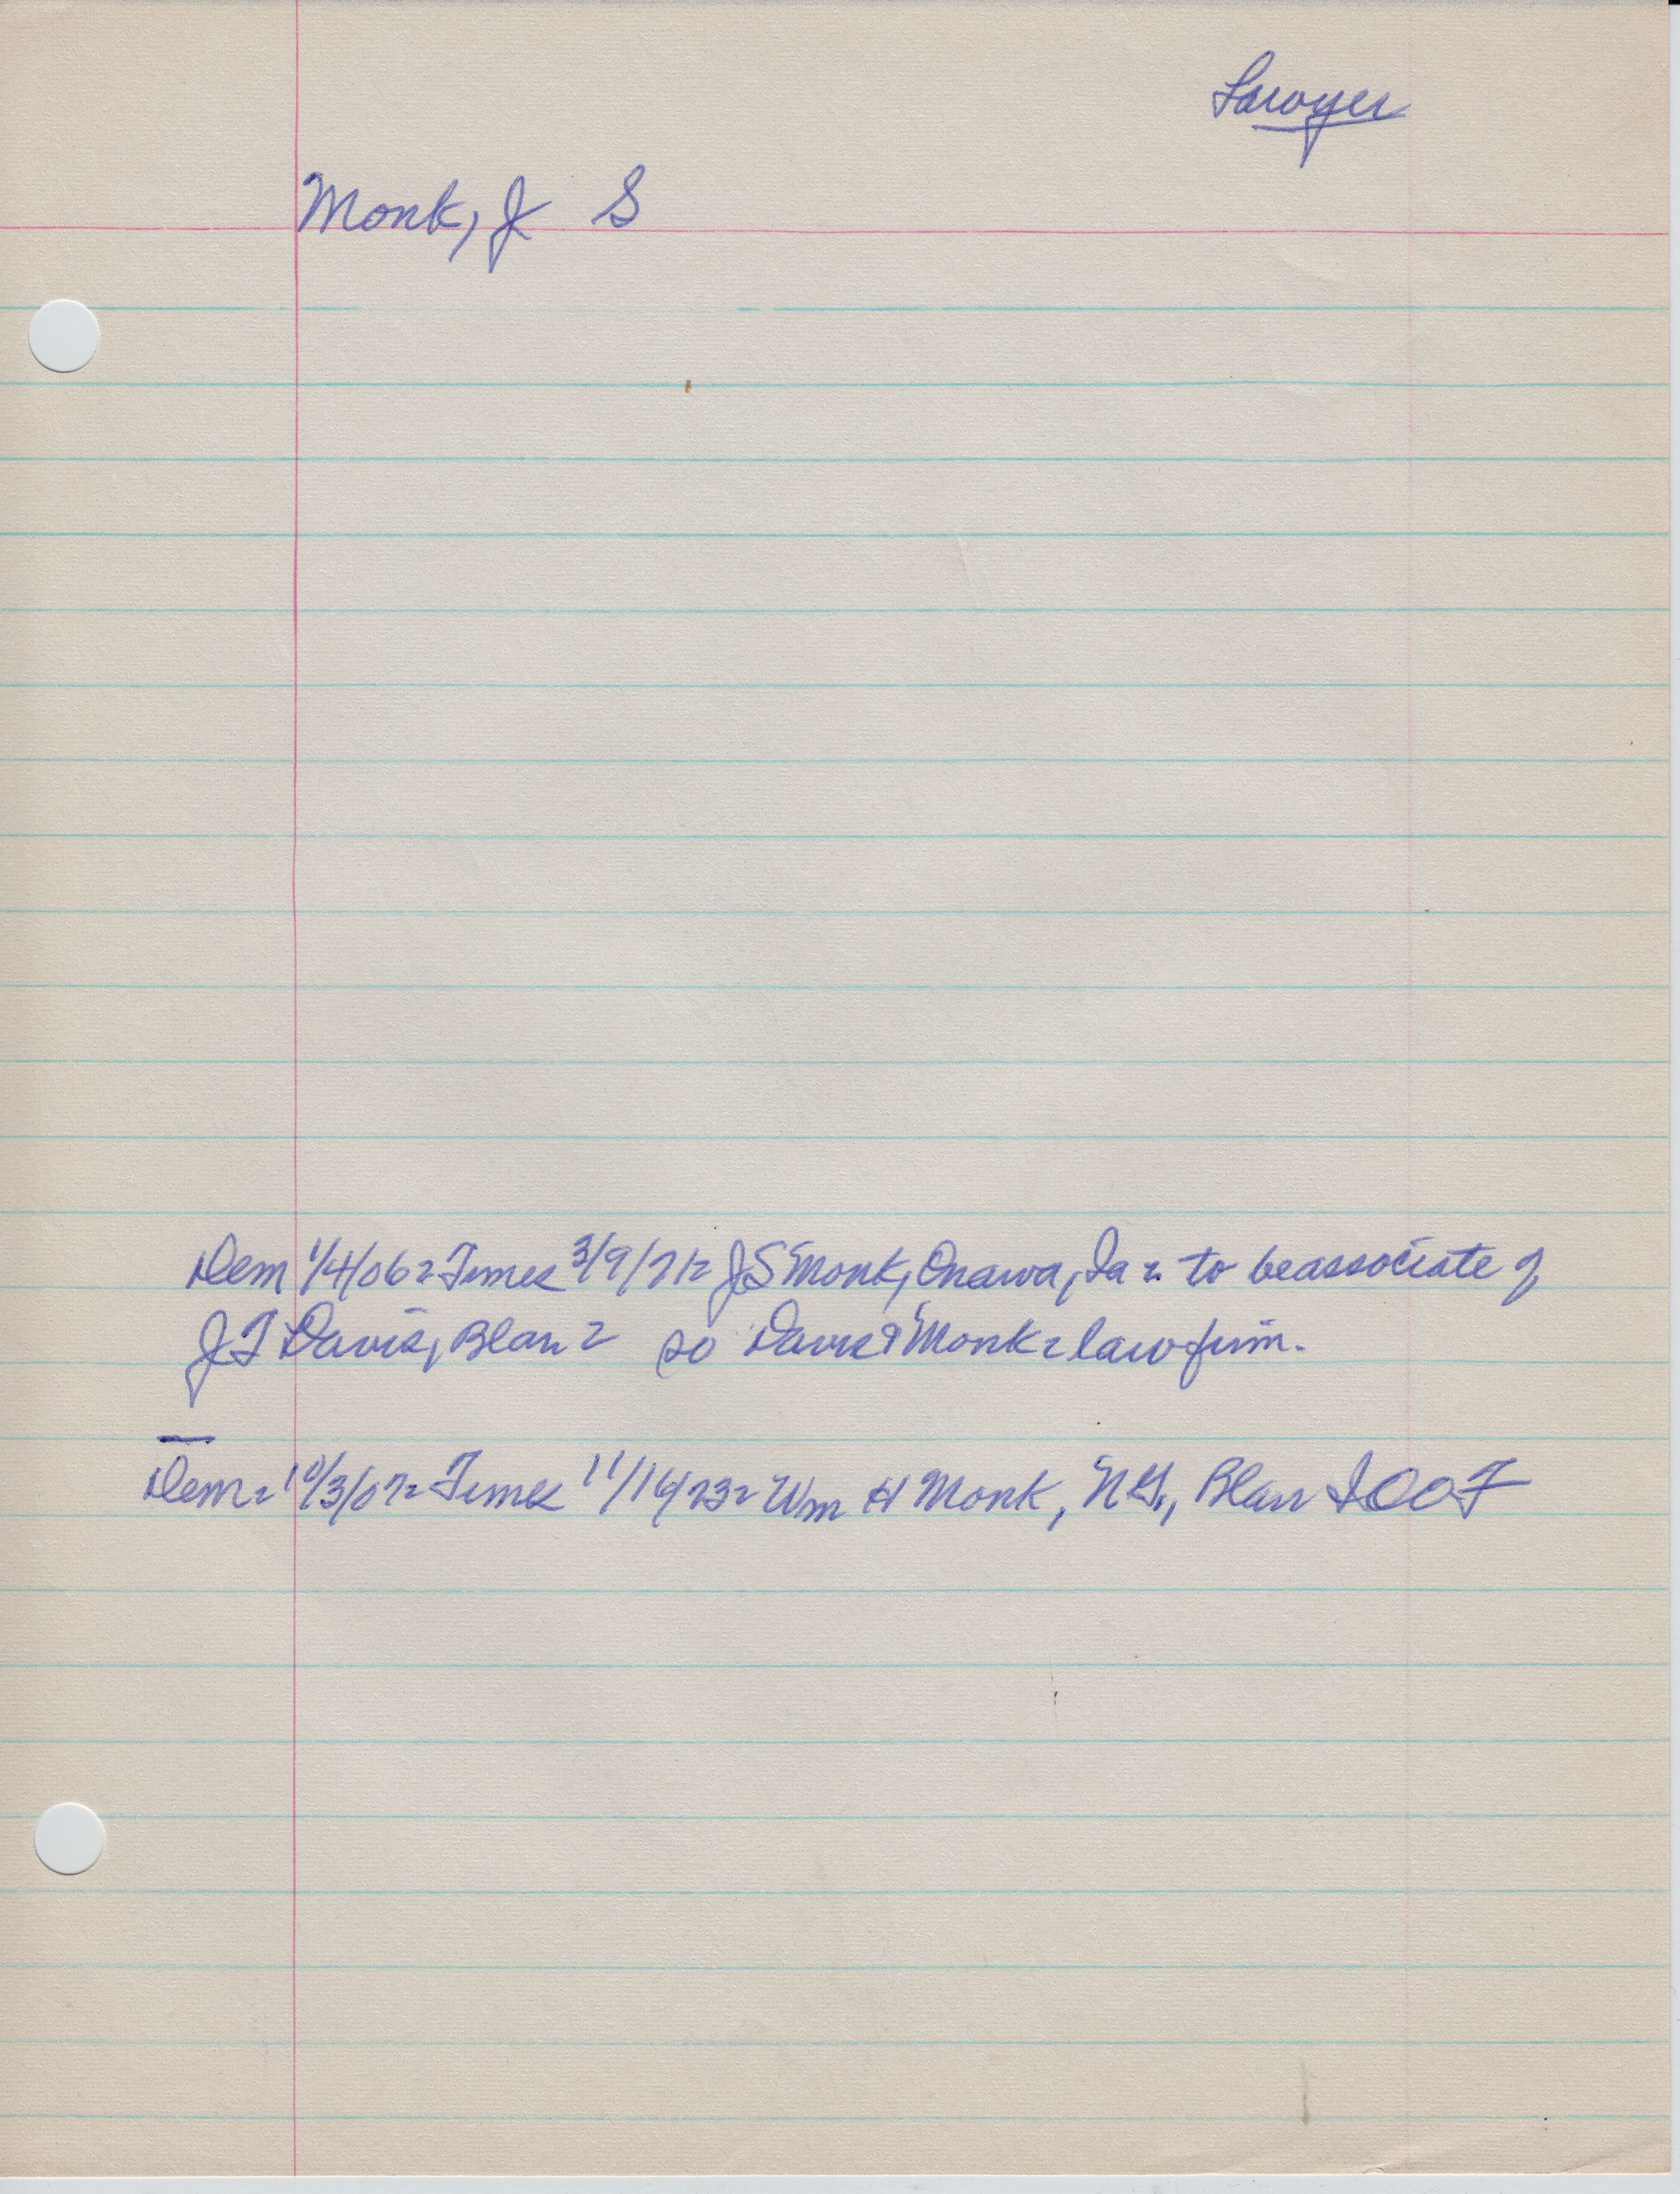 Lawyer
Monk, J S
Dem 1/4/06 = Times 3/9/71 = J S Monk, Onawa, Ia = to be associate of
J T Davis, Blair = so Davis & Monk = law firm.
Dem = 10/3/07 = Times 11/14/73 = Wm H Monk, N.G., Blair IOOF